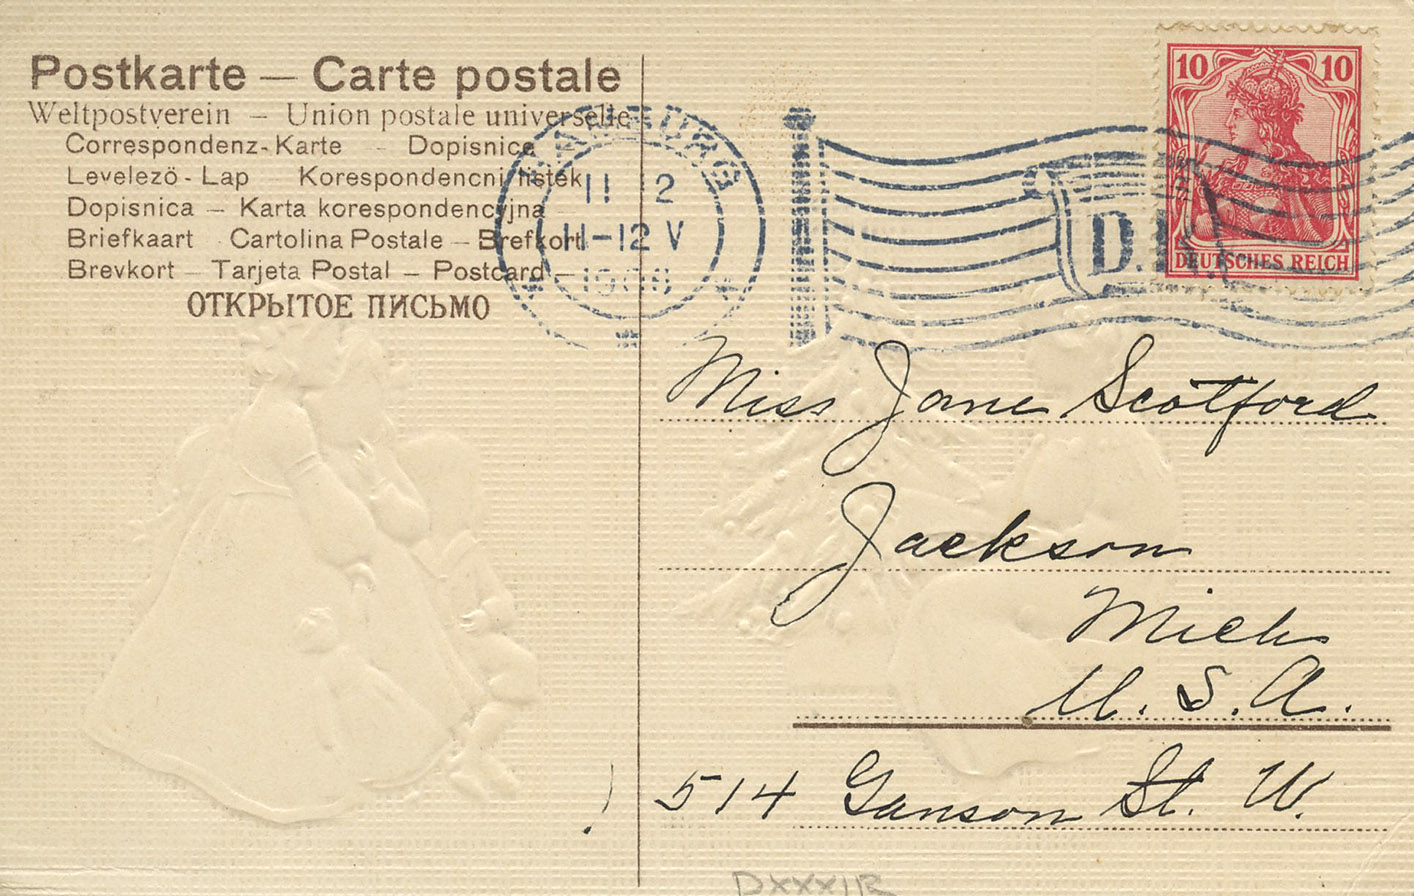 Postkarte — Carte postale
Weltpostverein — Union postale universelle
Correspondenz-Karte — Dopisnica
Levelezö - Lap Korespondencni listek
Dopisnica — Karta korespondencyjna
Briefkaart Cartolina Postale — Brefkort
Brevkort — Tarjeta Postal — Postcard —
ОТКРЫТОЕ ПИСЬМО
HAMBURG
11 12
11-12 V
1906
D.R.
10 10
DEUTSCHES REICH
Miss Jane Scotford
Jackson
Mich
U. S. A.
514 Ganson St. W.
DXXXIR